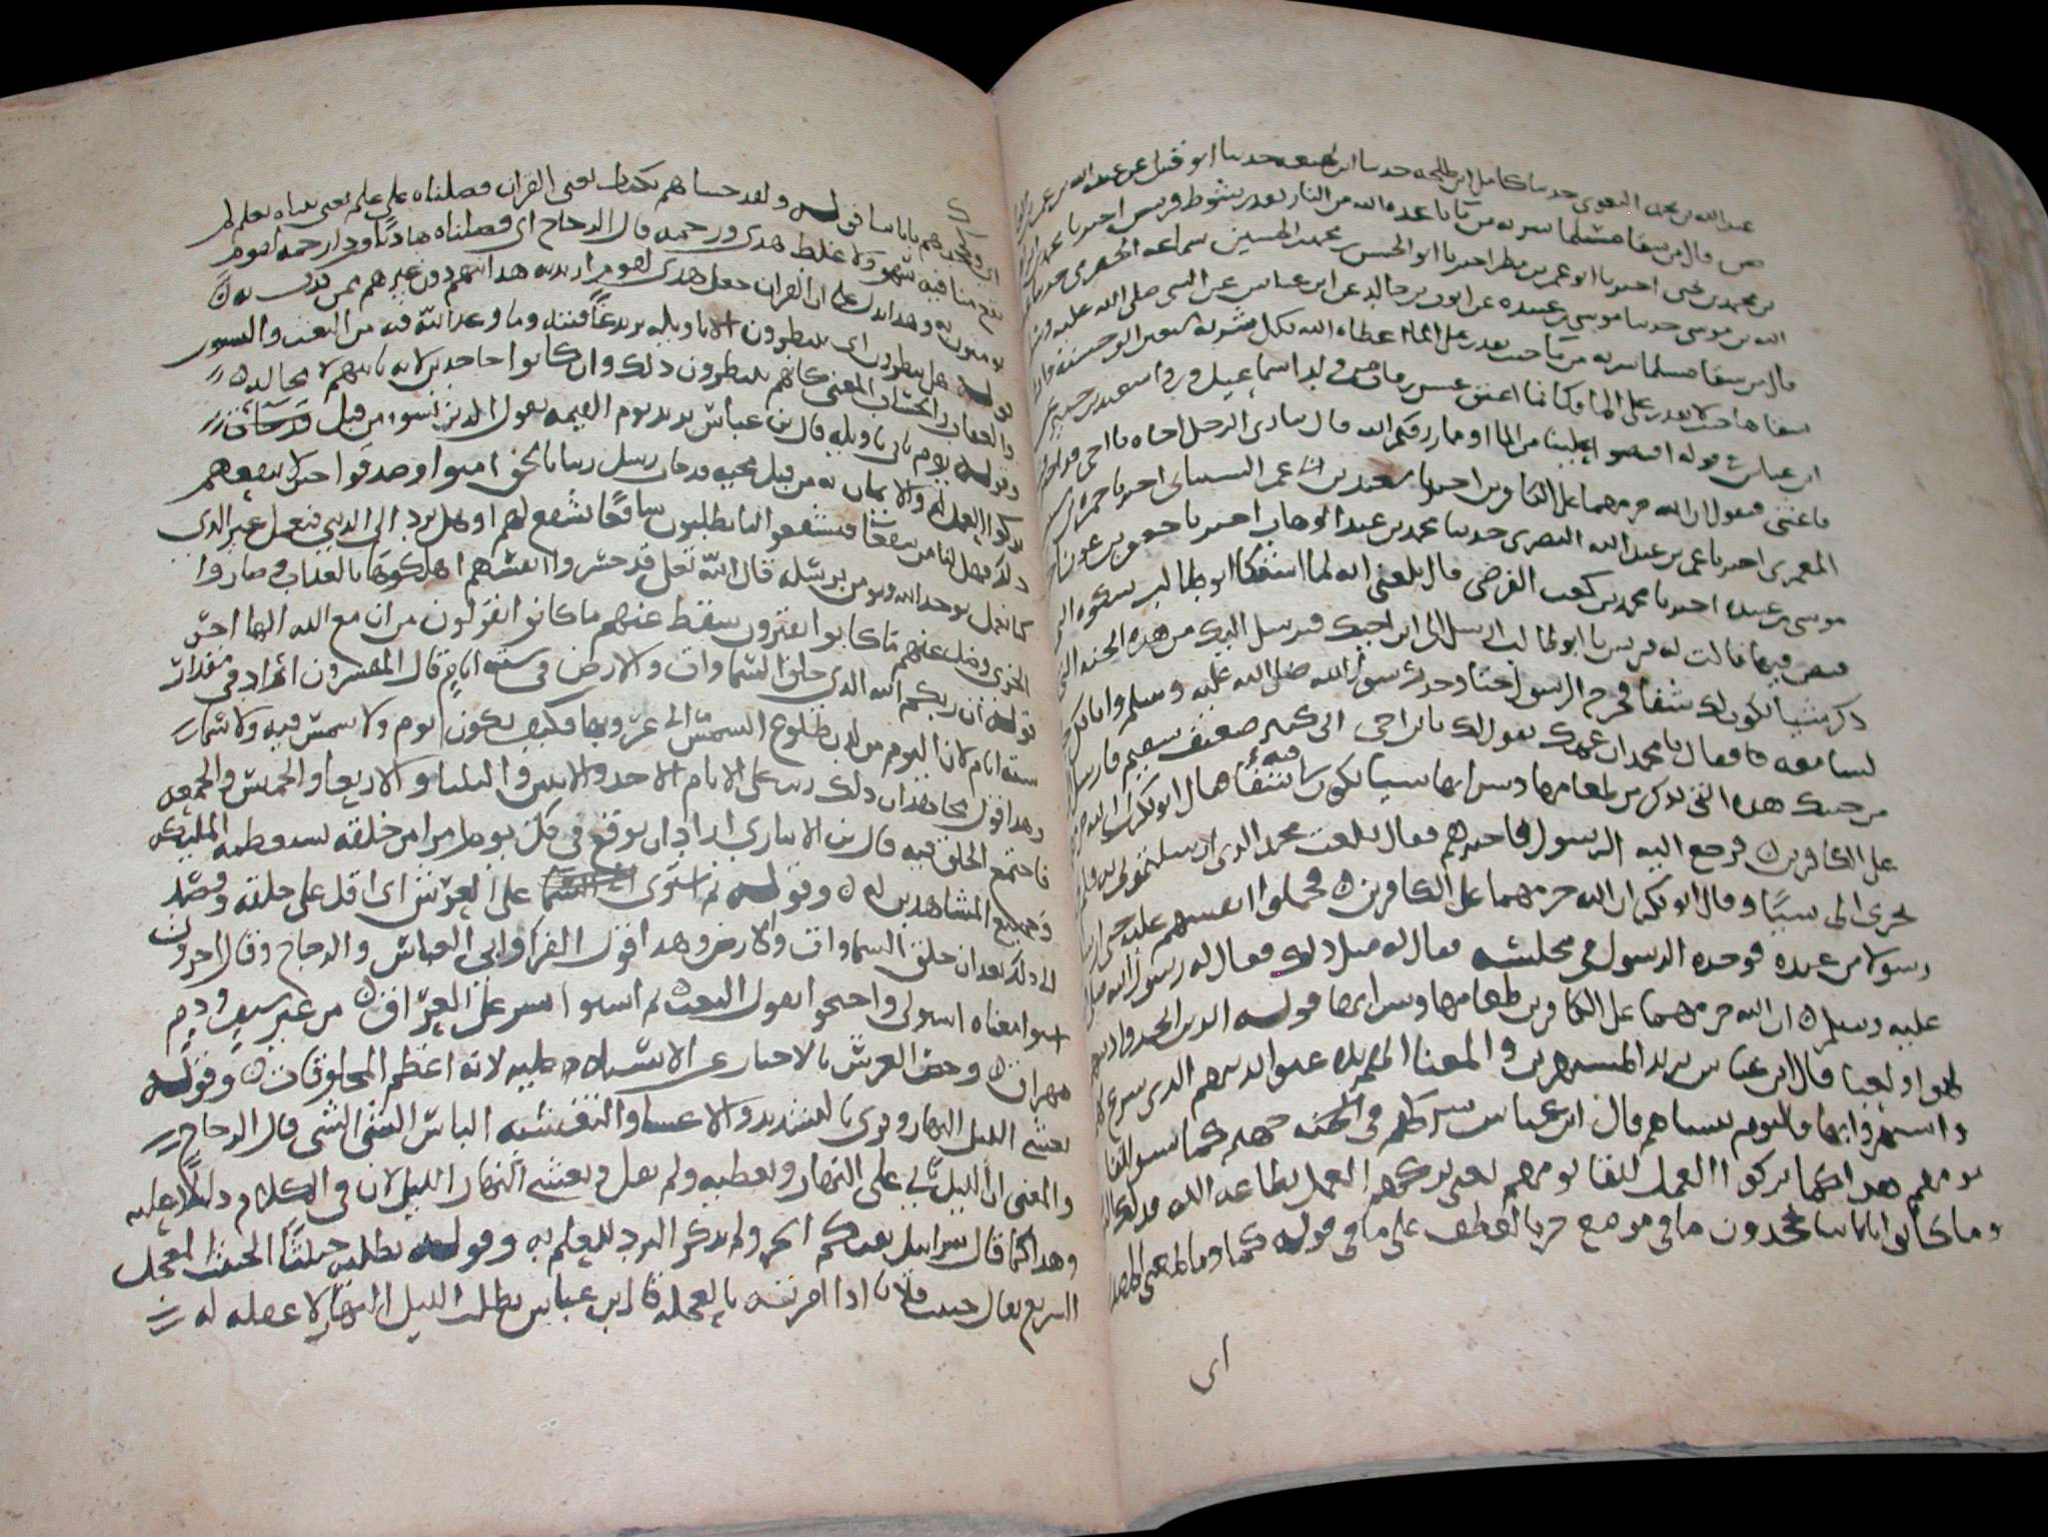 عبد الله بن محمد البغوى حدثنا كامل بن طلحه حدثنا ابن لهيعه حدثنا ابو قبيل عن عبد الله بن عمرو
قال من سقا مسلما شربه من ماء باعده الله من النار بعد شوط فرس اخبرنا محمد
بن محمد بن يحيى اخبرنا ابو عمرو بن مطر اخبرنا ابو الحسن محمد بن الحسين بن سماعه الحضرمى حدثنا
الله بن موسى حدثنا موسى بن عبيده عن ايوب بن خالد عن ابن عباس عن النبى صلى الله عليه وسلم
قال من سقا مسلما شربه من ماء حيث يقدر على الما اعطاه الله بكل شربه عشر حسنه وان
سقاها حيث لا يقدر على الما فكانما اعتق عشر رقاب من ولد اسماعيل وروا سعيد بن جبير عن
ابن عباس فى قوله افيضوا علينا من الما او مما رزقكم الله قال ينادى الرجل اخاه يا اخى قد احترقت
فاغثنى فيقول ان الله حرمهما على الكافرين اخبرنا سعيد بن عمر البستيانى اخبرنا حمزه بن
المعمرى اخبرنا عمر بن عبد الله البصرى حدثنا محمد بن عبد الوهاب اخبرنا جعفر بن عون
موسى بن عبيده اخبرنا محمد بن كعب القرضى قال بلغنى انه لما اشتكا ابو طالب شكوه التى
قبض فيها قالت له قريش يا ابو طالب ارسل الى ابن اخيك فيرسل اليك من هذه الجنه التى
ذكر شيا يكون لك شفا فخرج الرسول حتا وجد رسول الله صلى الله عليه وسلم وابا بكر
جالسا معه فقال يا محمد ان عمك يقول لك يا ابن اخى انى كبير ضعيف سقيم فارسل
من جنتك هذه التى تذكر من طعامها وشرابها شيا يكون لى فيه شفا قال ابو بكر ان الله حرمهما
على الكافرين فرجع اليه الرسول فاخبرهم فقال بلغت محمد الذى ارسلتمونى به فلم
يحرى الى شيا وقال ابو بكر ان الله حرمهما على الكافرين فحملوا انفسهم عليه حتى ارسل
رسولا من عنده فوجده الرسول فى مجلسه فقال له مثل ذلك فقال له رسول الله صلى الله
عليه وسلم ان الله حرمهما على الكافرين طعامها وشرابها قوله الذين اتخذوا دينهم
لهوا ولعبا قال ابن عباس يريد المستهزئين والمعنا تلاعبوا بدينهم الذى شرع لهم
واستهزوا بها فاليوم ننساهم قال ابن عباس نتركهم فى جهنم كما نسوا لقا
يومهم هذا كما تركوا العمل للقا يومهم يعنى تركهم العمل بطاعه الله
وما كانوا باياتنا يجحدون ما فى موضع جر بالعطف على ما فى قوله كما وما المعنى
اى
اى وبجحدهم باياتنا قوله ولقد جيناهم بكتاب يعنى القران فصلناه على علم يعنى بيناه بعلم لم
يقع منا فيه سهو ولا غلط هدى ورحمه قال الزجاج اى فصلناه هاديا وذا رحمه لقوم
يومنون وهذا يدل على ان القران جعل هدى لقوم اريد به هدايتهم دون غيرهم ممن كذب به
قوله هل ينظرون اى ينتظرون الا تاويله يريد عاقبته وما وعد الله فيه من البعث والنشور
والعقاب والحساب المعنى كانهم ينتظرون ذلك وان كانوا جاحدين لانه ياتيهم لا محاله
وقوله يوم ياتى تاويله قال بن عباس يريد يوم القيمه يقول الذين نسوه من قبل قد جات
تركوا العمل له والايمان به من قبل مجيه قد جات رسل ربنا بالحق امنوا وصدقوا حين لا ينفعهم
ذلك فهل لنا من شفعا فيشفعوا لنا يطلبون شافعا يشفع لهم او هل نرد الى الدنيا فنعمل غير الذى
كنا نعمل نوحد الله ونومن برسله قال الله تعلى قد خسروا انفسهم اهلكوها بالعذاب وصاروا
الخزى وضل عنهم ما كانوا يفترون سقط عنهم ما كانوا يقولون من ان مع الله الها اخر
قوله ان ربكم الله الذى خلق السماوات والارض فى سته ايام قال المفسرون اراد فى مقدار
سته ايام لان اليوم من لدن طلوع الشمس الى غروبها فكيف يكون يوم ولا شمس فيه ولا سما
وهذا قول مجاهد ان ذلك رد على الايام الاحد والاثنين والثلثا والاربعا والخميس والجمعه
فاجتمع الخلق فيه قال بن الانبارى اراد ان يوقع فى كل يوم امرا من خلقه يستعظمه المليكه
وجميع المشاهدين له وقوله ثم استوى على العرش اى اقبل على خلقه وقصد
الى ذلك بعد ان خلق السماوات والارض وهذا قول الفرا وابى العباس والزجاج وقال اخرون
استوا معناه استولى واحتجوا بقول البعيث ثم استوا بشر على العراق من غير سيف ودم
مهراق وخص العرش بالاخبار عن الاستيلا عليه لانه اعظم المخلوقات وقوله
يغشى الليل النهار وقرى بالتشديد والاغشا والتغشيه الباس الشى الشى قال الزجاج
والمعنى ان الليل ياتى على النهار ويغطيه ولم يقل ويغشى النهار الليل لان فى الكلام دليلا عليه
وهذا كما قال سرابيل تقيكم الحر ولم يذكر البرد للعلم به وقوله يطلبه حثيثا الحثيث المعجل
السريع يقال حثثت فلانا اذا امرته بالعجله قال بن عباس يطلب الليل النهار لا غفله له